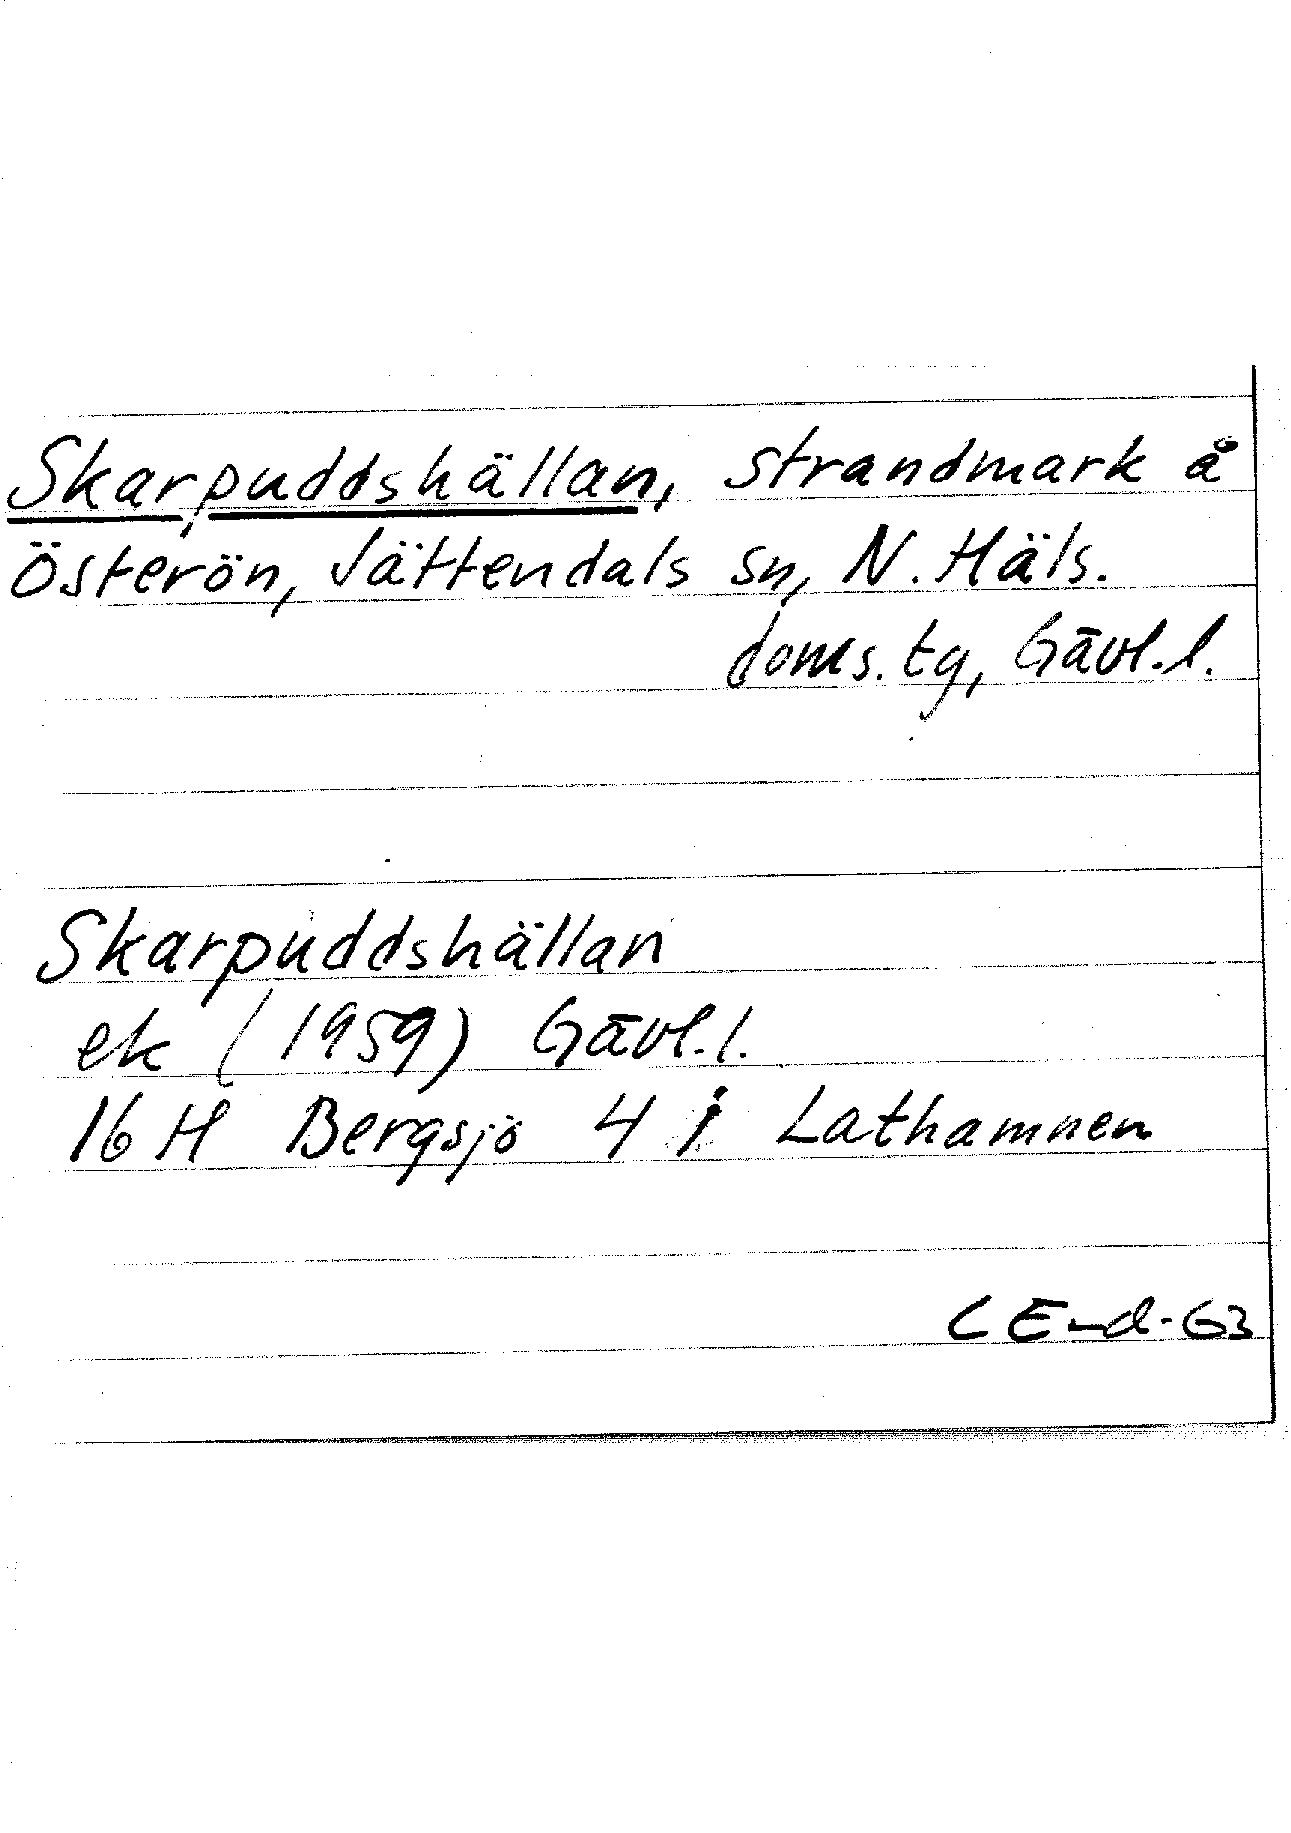 Skarpuddshällan, strandmark å
Österön, Jättendals sn, N. Häls.
doms. tg, Gävl. l.
Skarpuddshällan
ek (1959) Gävl. l.
16 H Bergsjö 4 i Lathamnen